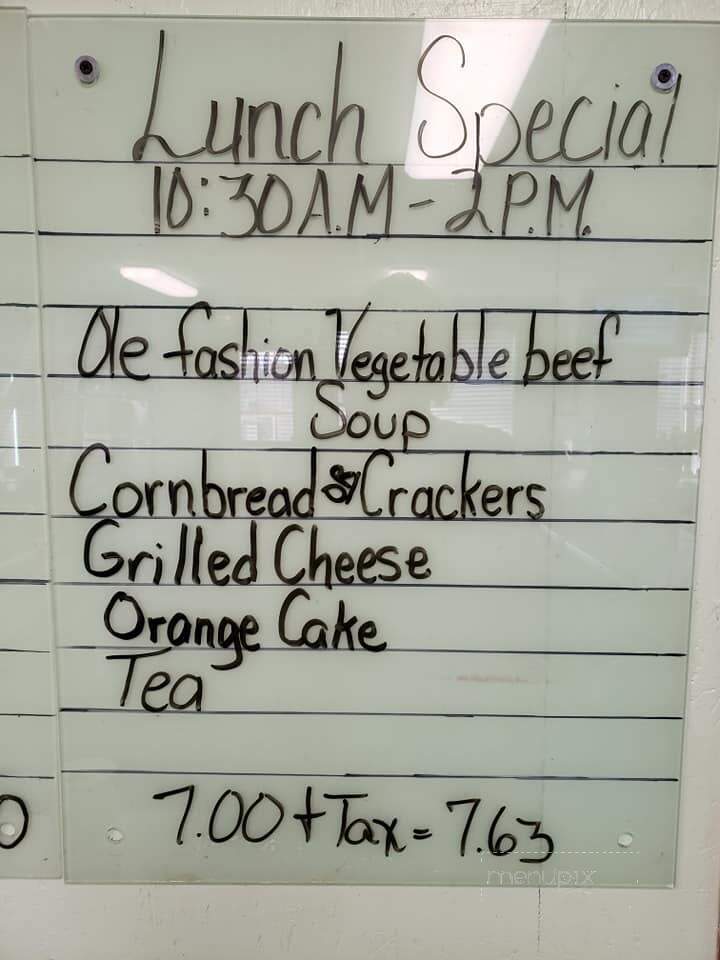 Lunch Special
10:30A.M-2P.M.
Ole fashion Vegetable beef
Soup
Cornbread & Crackers
Grilled Cheese
Orange Cake
Tea
7.00 + Tax = 7.63
0
menupix